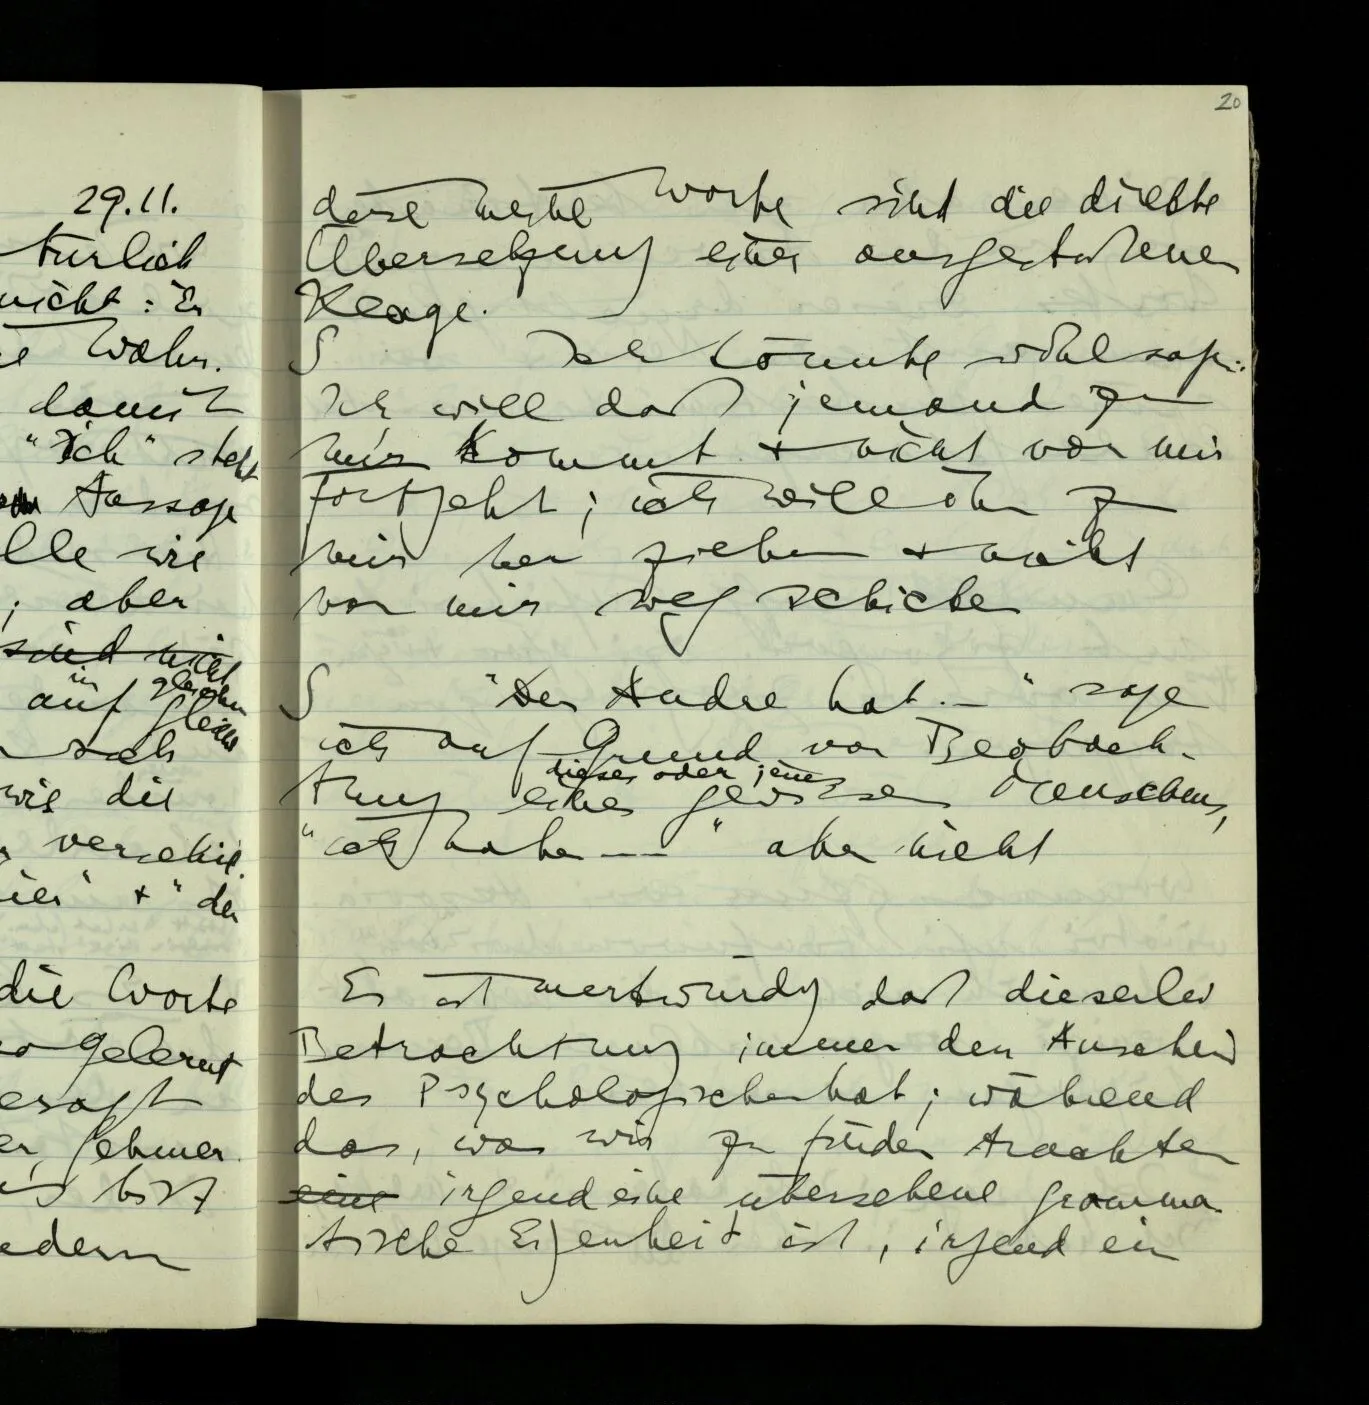 29.11.
türlich
nicht: Er
Wahn.
damit
"Ich" steht
Aussage
lle wie
; aber
sind nicht
in gleicher
auf
sich
wie die
verschie
" + "der
die Worte
gelernt
esagt
er, gehmer
bist
edern
20
diese meine Worte sind die direkte
Übersetzung einer ausgestoßenen
Klage.
S Ich könnte wohl sagen:
Ich will daß jemand zu
mir kommt + nicht von mir
fortgeht; ich will ihn zu
mir her ziehen + nicht
von mir weg schicken
S "Der Andre hat .–" sage
ich auf Grund von Beobach-
dieses oder jenes
tung eines gewissen Menschen,
"ich habe –– " aber nicht
Es ist merkwürdig daß dieserlei
Betrachtung immer den Anschein
des Psychologischen hat; während
das, was wir zu finden trachten
eine irgend eine übersehene gramma
tische Eigenheit ist, irgend ein